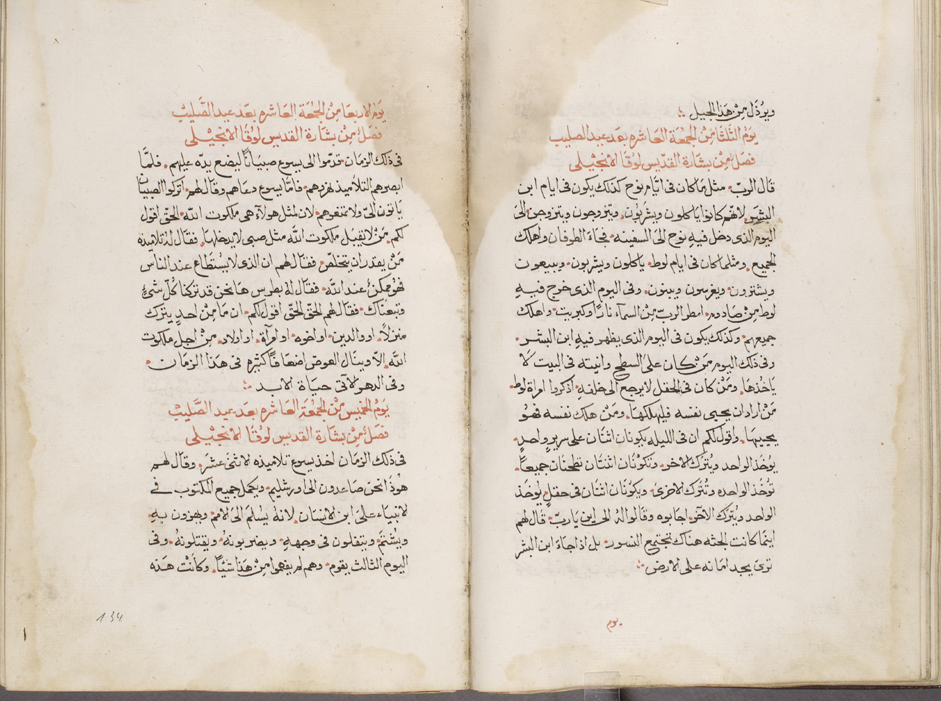 ويرذل من هذا الجيل
يوم الثلثا من الجمعة العاشره بعد عيد الصليب
فصل من بشارة القديس لوقا الانجيلى
قال الرب مثل ما كان فى ايام نوح كذلك يكون فى ايام ابن
البشر لانهم كانوا ياكلون ويشربون ويتزوجون ويتزوجن الى
اليوم الذى دخل فيه نوح الى السفينه فجاء الطوفان واهلك
الجميع ومثلما كان فى ايام لوط ياكلون ويشربون ويبيعون
ويشترون ويغرسون ويبنون وفى اليوم الذى خرج فيه
لوط من صادوم امطر الرب من السمآء نارًا وكبريت واهلك
جميعهم وكذلك يكون فى اليوم الذى يظهر فيه ابن البشر
وفى ذلك اليوم من كان على السطح وانيته فى البيت لا
ياخذها ومن كان فى الحقل لا يرجع الى خلفه اذكروا امراة لوط
من اراد ان يحيى نفسه فليهلكها ومن هلك نفسه فهو
يحييها واقول لكم ان فى الليله يكونان اثنان على سرير واحد
يوخذ الواحد ويترك الاخر وتكونان اثنتان تطحنان جميعًا
توخذ الواحده وتترك الاخرى ويكونان اثنان فى حقل يوخذ
الواحد ويترك الاخر اجابوه وقالوا له الى اين يا رب قال لهم
اينما كانت الجثه هناك تجتمع النسور بل اذا جاء ابن البشر
ترى يجد امانه على الارض
يوم
يوم الاربعا من الجمعة العاشره بعد عيد الصليب
فصل من بشارة القديس لوقا الانجيلى
فى ذلك الزمان قدموا الى يسوع صبيانًا ليضع يده عليهم فلمّا
ابصروهم التلاميذ نهروهم فامّا يسوع دعاهم وقال لهم اتركوا الصبيان
ياتون الىّ ولا تمنعوهم لان لمثل هولآء هى ملكوت الله الحق اقول
لكم من لا يقبل ملكوت الله مثل صبى لا يدخلها فقال له تلاميذه
من يقدر ان يتخلص فقال لهم ان الذى لا يستطاع عند الناس
هو ممكن عند الله فقال له بطرس ها نحن قد تركنا كل شئ
وتبعناك فقال لهم الحق الحق اقول لكم ان ما من احد يترك
منزلاً او والدين او اخوه او امرآة او اولاد من اجل ملكوت
الله الا وينال العوض اضعافًا كثيره فى هذا الزمان
وفى الدهر الاتى حياة الابد
يوم الخميس من الجمعة العاشره بعد عيد الصليب
فصل من بشارة القديس لوقا الانجيلى
فى ذلك الزمان اخذ يسوع تلاميذه الاثنى عشر وقال لهم
هوذا نحن صاعدون الى اورشليم ويكمل جميع المكتوب فى
الانبياء على ابن الانسان لانه يسلم الى الامم ويهزون به
ويشتم ويتفلون فى وجهه ويضربونه ويقتلونه وفى
اليوم الثالث يقوم وهم لم يفهموا من هذا شيًا وكانت هذه
134